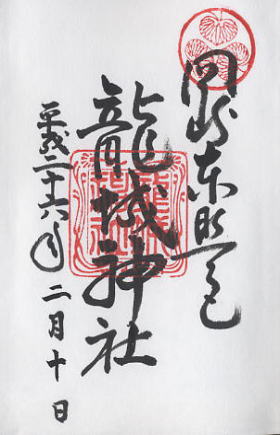 岡崎東照宮
龍城神社
平成二十六年
二月十日